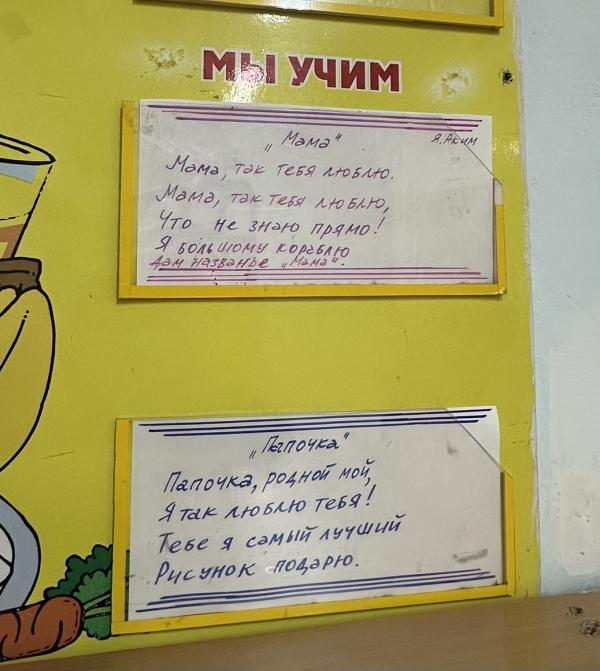 МЫ УЧИМ
„Мама"
Я.Аким
Мама, так тебя люблю.
Мама, так тебя люблю,
Что не знаю прямо!
Я большому кораблю
Дам названье „Мама".
„Папочка"
Папочка, родной мой,
Я так люблю тебя!
Тебе я самый лучший
Рисунок подарю.